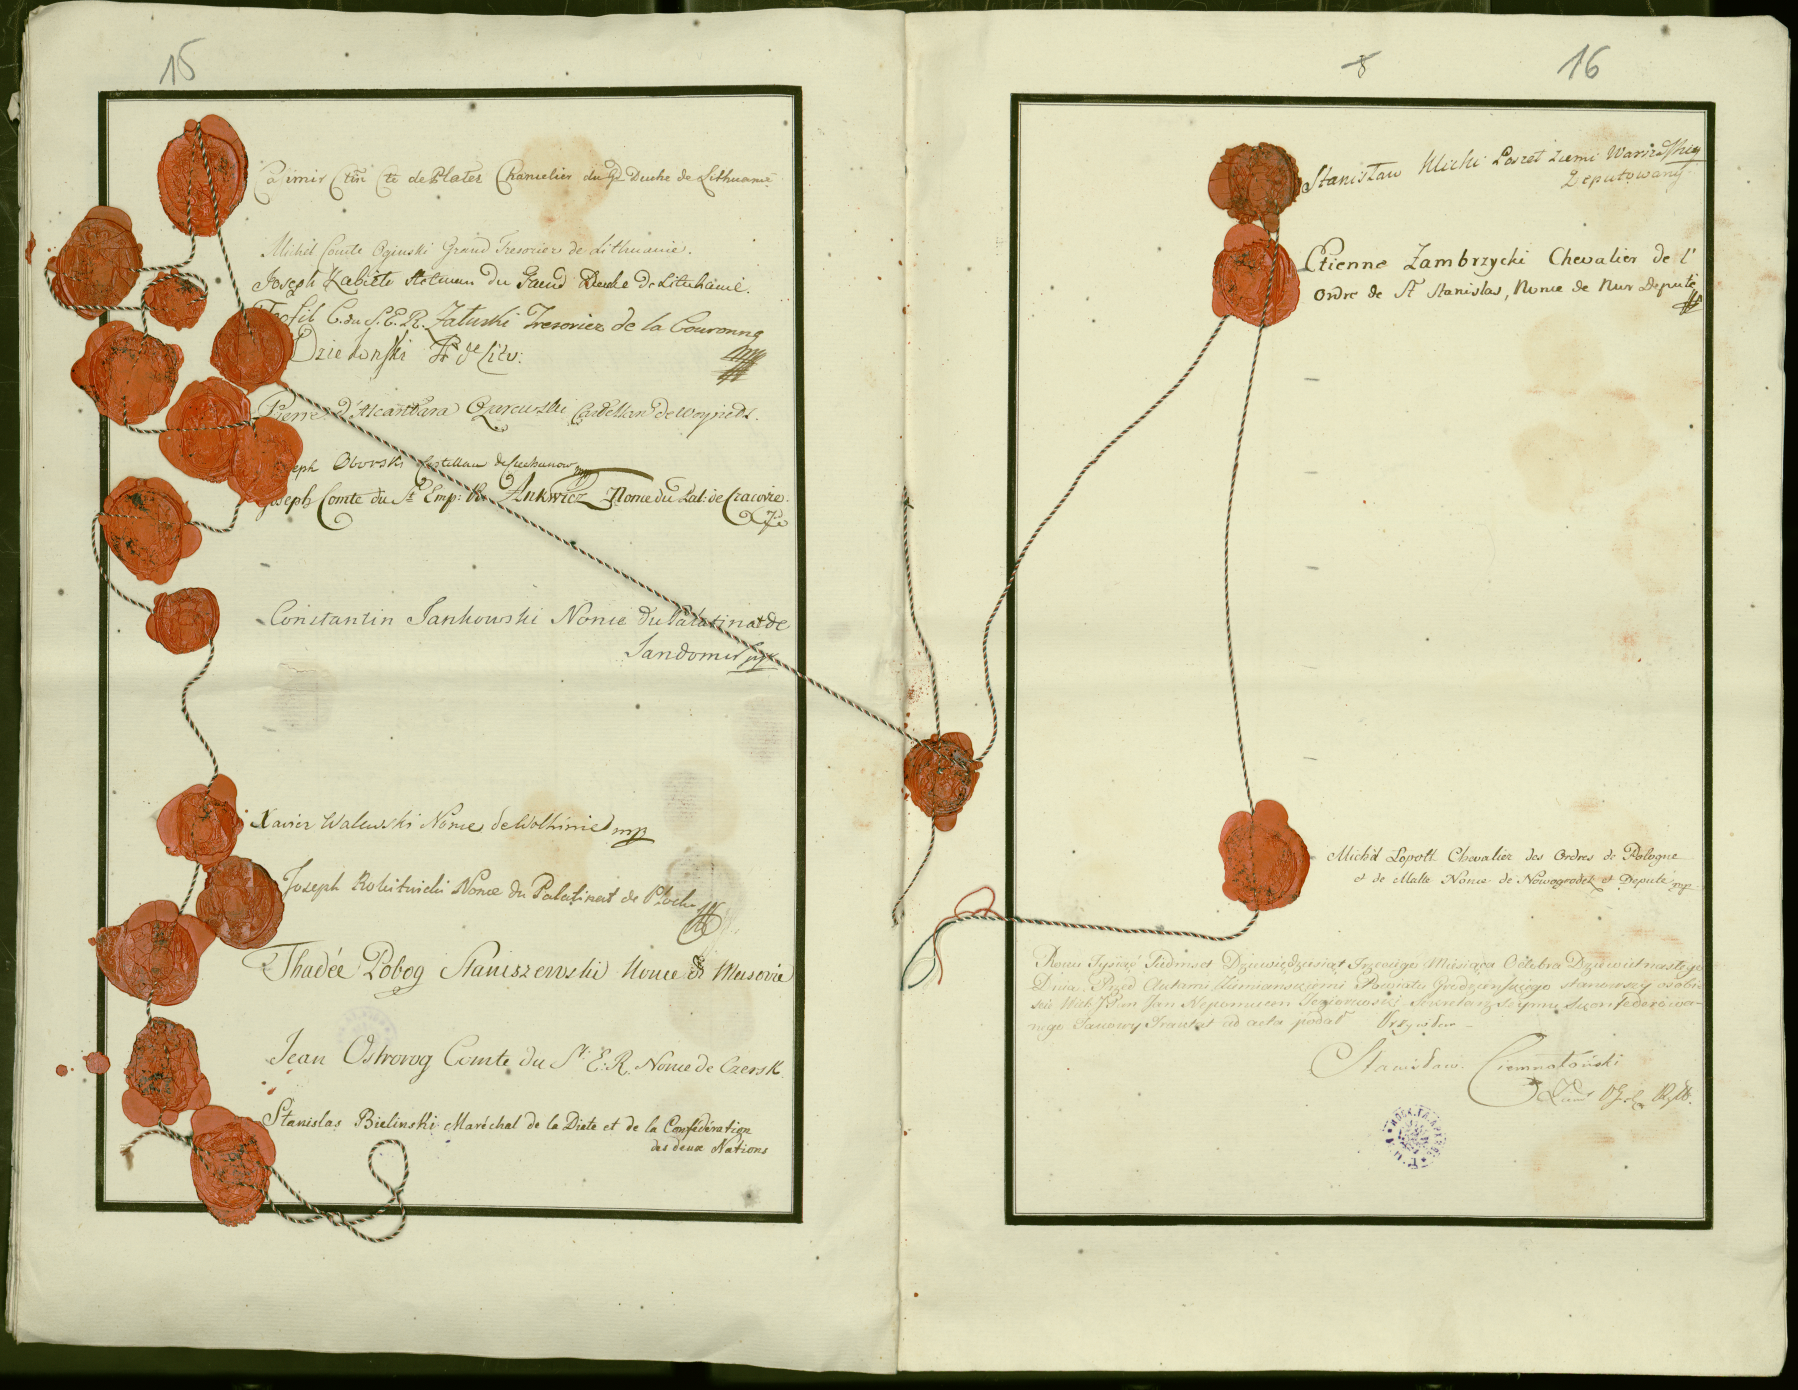 15
Casimir Ctin Cte de Plater Chancelier du Gd Duche de Lithuanie
Michel Comte Oginski Grand Tresorier de Lithuanie.
Joseph Zabiełło Hetman du Grand Duche de Lituhanie.
Teofil C. du S. E. R. Załuski Tresorier de la Couronne
Dziekoński Tr de Litv:
Pierre d'Alcantara Ożarowski Castellan de Woynicz.
Joseph Oborski Castellan de Ciechanow mp
Joseph Comte du St Emp: Ro Ankwicz Nonce du Pal: de Cracovie.
Constantin Jankowski Nonce du Palatinat de
Sandomir mp
Xavier Walewski Nonce de Wolhinie mp
Joseph Rokitnicki Nonce du Palatinat de Plock
Thadée Pobog Staniszewski Nonce de Masovie
Jean Ostrorog Comte du St. E. R. Nonce de Czersk
Stanislas Bielinski Maréchal de la Diete et de la Confédération
des deux Nations
16
Stanisław Kleski Poseł ziemi Warszskiey
Deputowany
Etienne Zambrzycki Chevalier de l'
Ordre de St Stanislas, Nonce de Nur Deputé
Michel Łopott Chevalier des Ordres de Pologne
et de Malte Nonce de Nowogrodek et Deputé mp
Roku Tysiąc Siedmset Dziewiędziesiąt Trzeciego Miesiąca Octobra Dziewietnastego
Dnia. Przed Aktami Ziemianskiemi Powiatu Grodzienskiego stanowszy osobi-
scie Jan Nepomucen Jeziorkowski Sekretarz Seymu Skonfederowa-
nego Takowy Traktat ad acta podał Przyiołem
Stanisław Ciemnołoński